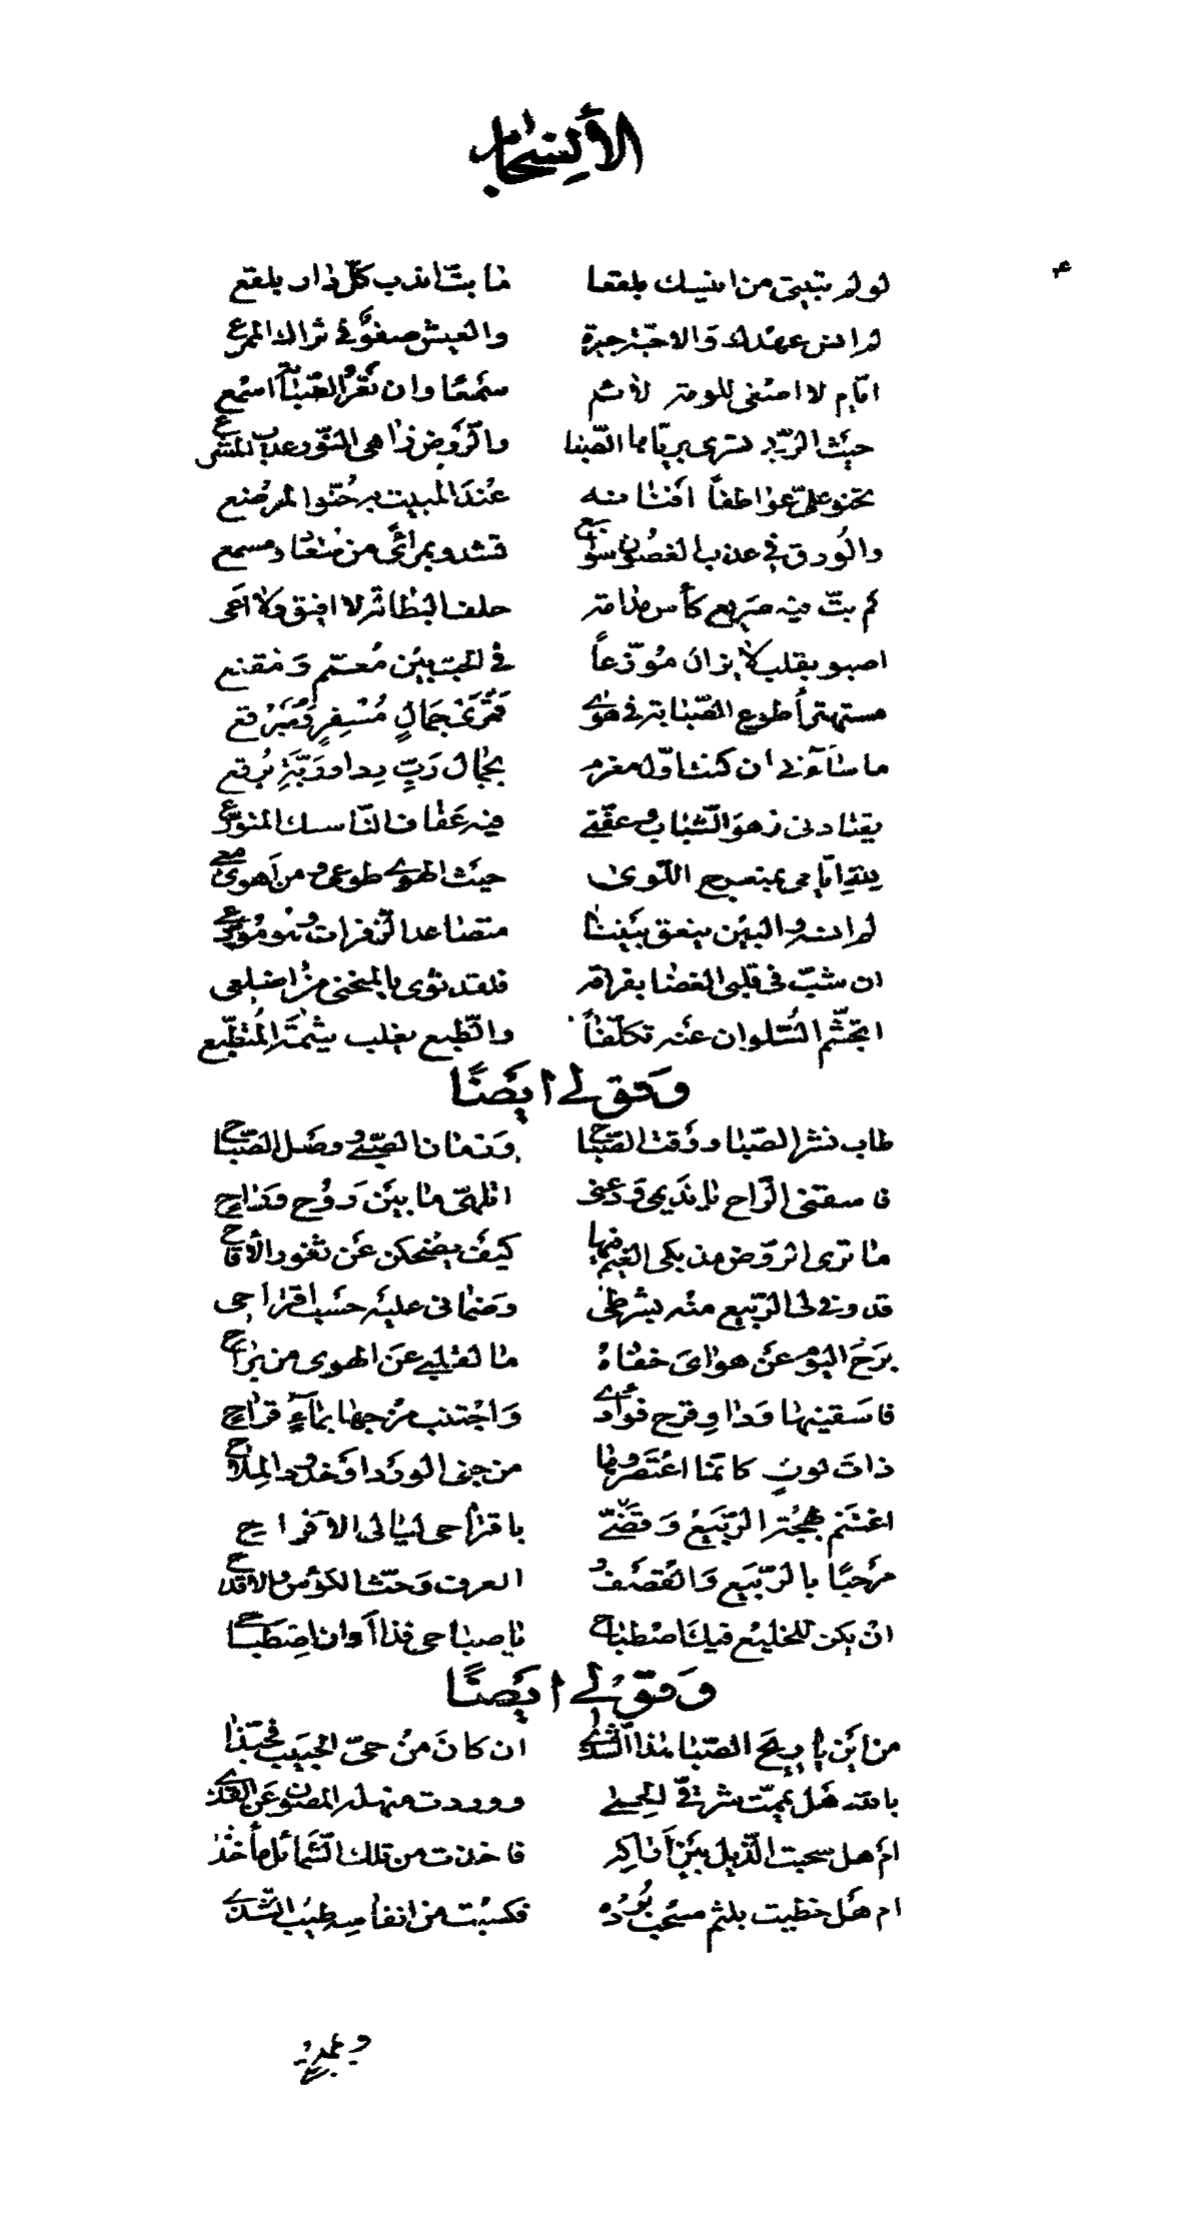 الأسحار
٤
لو لم تبق من انيسك بلقعا ما بتّ اندب كلّ دار بلقع
لم انس عهدك والاحبّة جيرة والعيش صفو في ثراك الممرع
ايّام لا اصغى للومة لائم سمعًا وان نغر الصّبابة اسمع
حيث الرّبى تسرى بريّاها الصّبا والرّوض زاهى النّور عذب المشرع
تحنو علىّ عواطفاً افنانه عند المبيت به حنّوا لمرضع
والورق في عذب الغصون سواجع تشدو بمرأىً من سعاد ومسمع
كم بتّ فيه صريع كأس مدامة حلف البطالة لا افيق ولا اعى
اصبو بقلب لا يزال مُوزّعاً في الحبّ بين مُعمّم ومُقنع
مستهتراً طوع الصّبابة في هوى قمرى جمالٍ مُسفرٍ ومُبرقع
ما ساءنى ان كنت اوّل مغرم بجمال ربّ رداء وربّة برقع
يقتادنى زهو الشّباب وعفّتى فيه عفاف النّاسك المتورّع
للهِ ايّامى بمنعرج اللّوى حيث الهوى طوعى ومن أهوى معى
لم انسه والبين ينعق بيننا متصاعد الزّفرات وهو مُودّعى
ان شبّ في قلبى الغضا بفراقه فلقد ثوى بالمنحنى من اضلعى
اتجشّم السّلوان عنه تكلّفاً والطّبع يغلب شيمة المُتطبّع
وقوله ايضًا
طاب نشر الصّبا ووقت الصّباح وزمان الصّبى وفصل الصّباح
فاسقنى الرّاح يا نديمى ودعنى اتلهّى ما بين رَوح وراح
ما ترى الروّض مذ بكى الغيم فيها كيف يضحكن عن ثغور الأقاح
قد وفى لى الرّبيع منه بشرطى وضمانى عليه حسب اقتراحى
برح اليوم عن هواى خفاهُ ما لقلبى عن الهوى من براح
فاسقينها وداو قرح فؤادى واجتنب مزجها بماءٍ قراح
ذات لون كانّما اعتصروها من جنى الورد او خدود الملاح
اغتنم بهجة الرّبيع وقضّى باقتراحى ليالى الافراح
مرحبًا بالرّبيع والقصف والعزف وحثّ الكؤس والاقداح
ان يكن للخليع فيك اصطباح يا صباحى فذا أوان اصطباحى
وقوله ايضًا
من اين يا ريح الصّبا هذا الشّذى ان كان من حىّ الحبيب فحبّذا
بالله هل يمّمت شرقىّ الحمى ووردت منهله المصون عن القذى
ام هل سحبت الذّيل بين اراكه فاخذت من تلك الشّمائل مأخذا
ام هل حظيت بلثم مسحب بُرده فكسبت من انفاسه طيب الشّذى